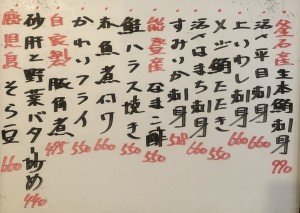 釜石産 生本鮪刺身 990
活〆平目刺身 660
上いわし刺身 660
メジ鮪たたき 550
活〆はまち刺身 660
すみいか刺身 508
能登産 なまこ酢 550
鮭ハラス焼き 550
赤魚煮付け 660
かわりフライ 550
自家製 豚角煮 495
砂肝と野菜バター炒め 440
鹿児島 そら豆 660